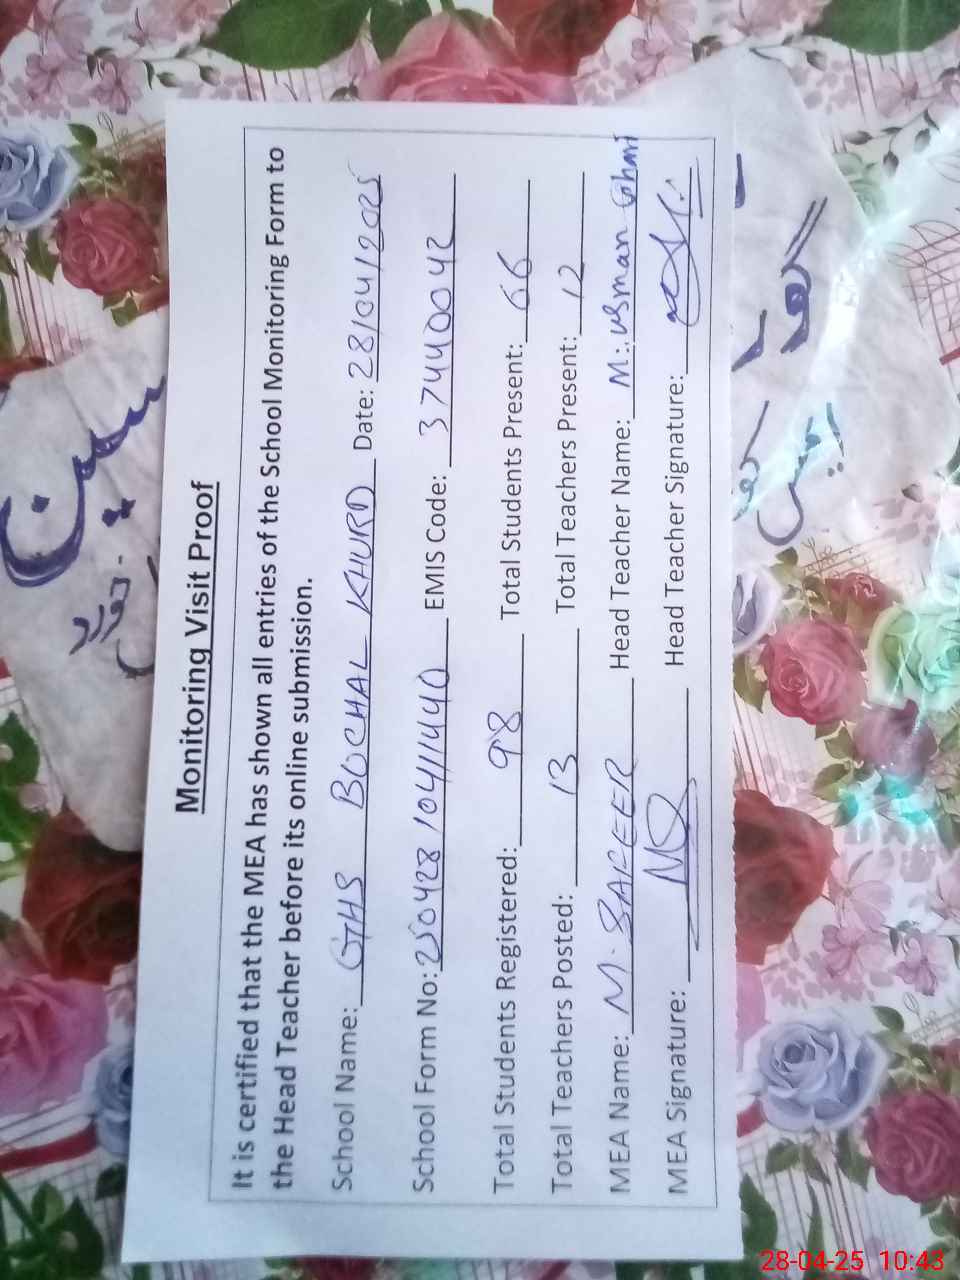 Monitoring Visit Proof
It is certified that the MEA has shown all entries of the School Monitoring Form to
the Head Teacher before its online submission.
School Name: GHS BOCHAL KHURD Date: 28/04/2025
School Form No: 250428/041/1440 EMIS Code: 37440042
Total Students Registered: 98 Total Students Present: 66
Total Teachers Posted: 13 Total Teachers Present: 12
MEA Name: M. SAFEER Head Teacher Name: M. Usman Ghani
MEA Signature: Head Teacher Signature:
28-04-25 10:43